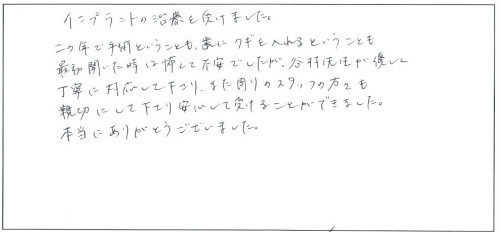 インプラントの治療を受けました。
この年で手術ということも、歯にクギを入れるということも
最初聞いた時は怖くて不安でしたが、谷村先生が優しく
丁寧に対応して下さり、また周りのスタッフの方々も
親切にして下さり安心して受けることができました。
本当にありがとうございました。